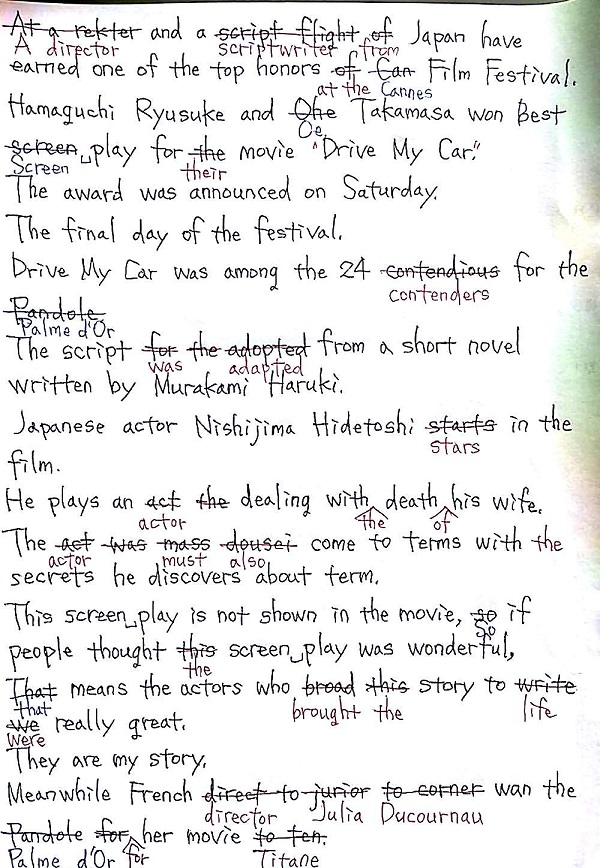 At a rekter and a script flight of Japan have
A director scriptwriter from
earned one of the top honors of Can Film Festival.
at the Cannes
Hamaguchi Ryusuke and Ohe Takamasa won Best
Oe
screen play for the movie "Drive My Car."
Screen their
The award was announced on Saturday.
The final day of the festival.
Drive My Car was among the 24 contendious for the
contenders
Pandole
Palme d'Or
The script for the adopted from a short novel
was adapted
written by Murakami Haruki.
Japanese actor Nishijima Hidetoshi starts in the
stars
film.
He plays an act the dealing with death his wife.
actor the of
The act was mass dousei come to terms with the
actor must also
secrets he discovers about term.
This screen play is not shown in the movie, so if
So
people thought this screen play was wonderful,
the
That means the actors who broad this story to write
that brought the life
we really great.
were
They are my story.
Meanwhile French direct to jurior to corner wan the
director Julia Ducournau
Pandole for her movie to ten.
Palme d'Or for Titane